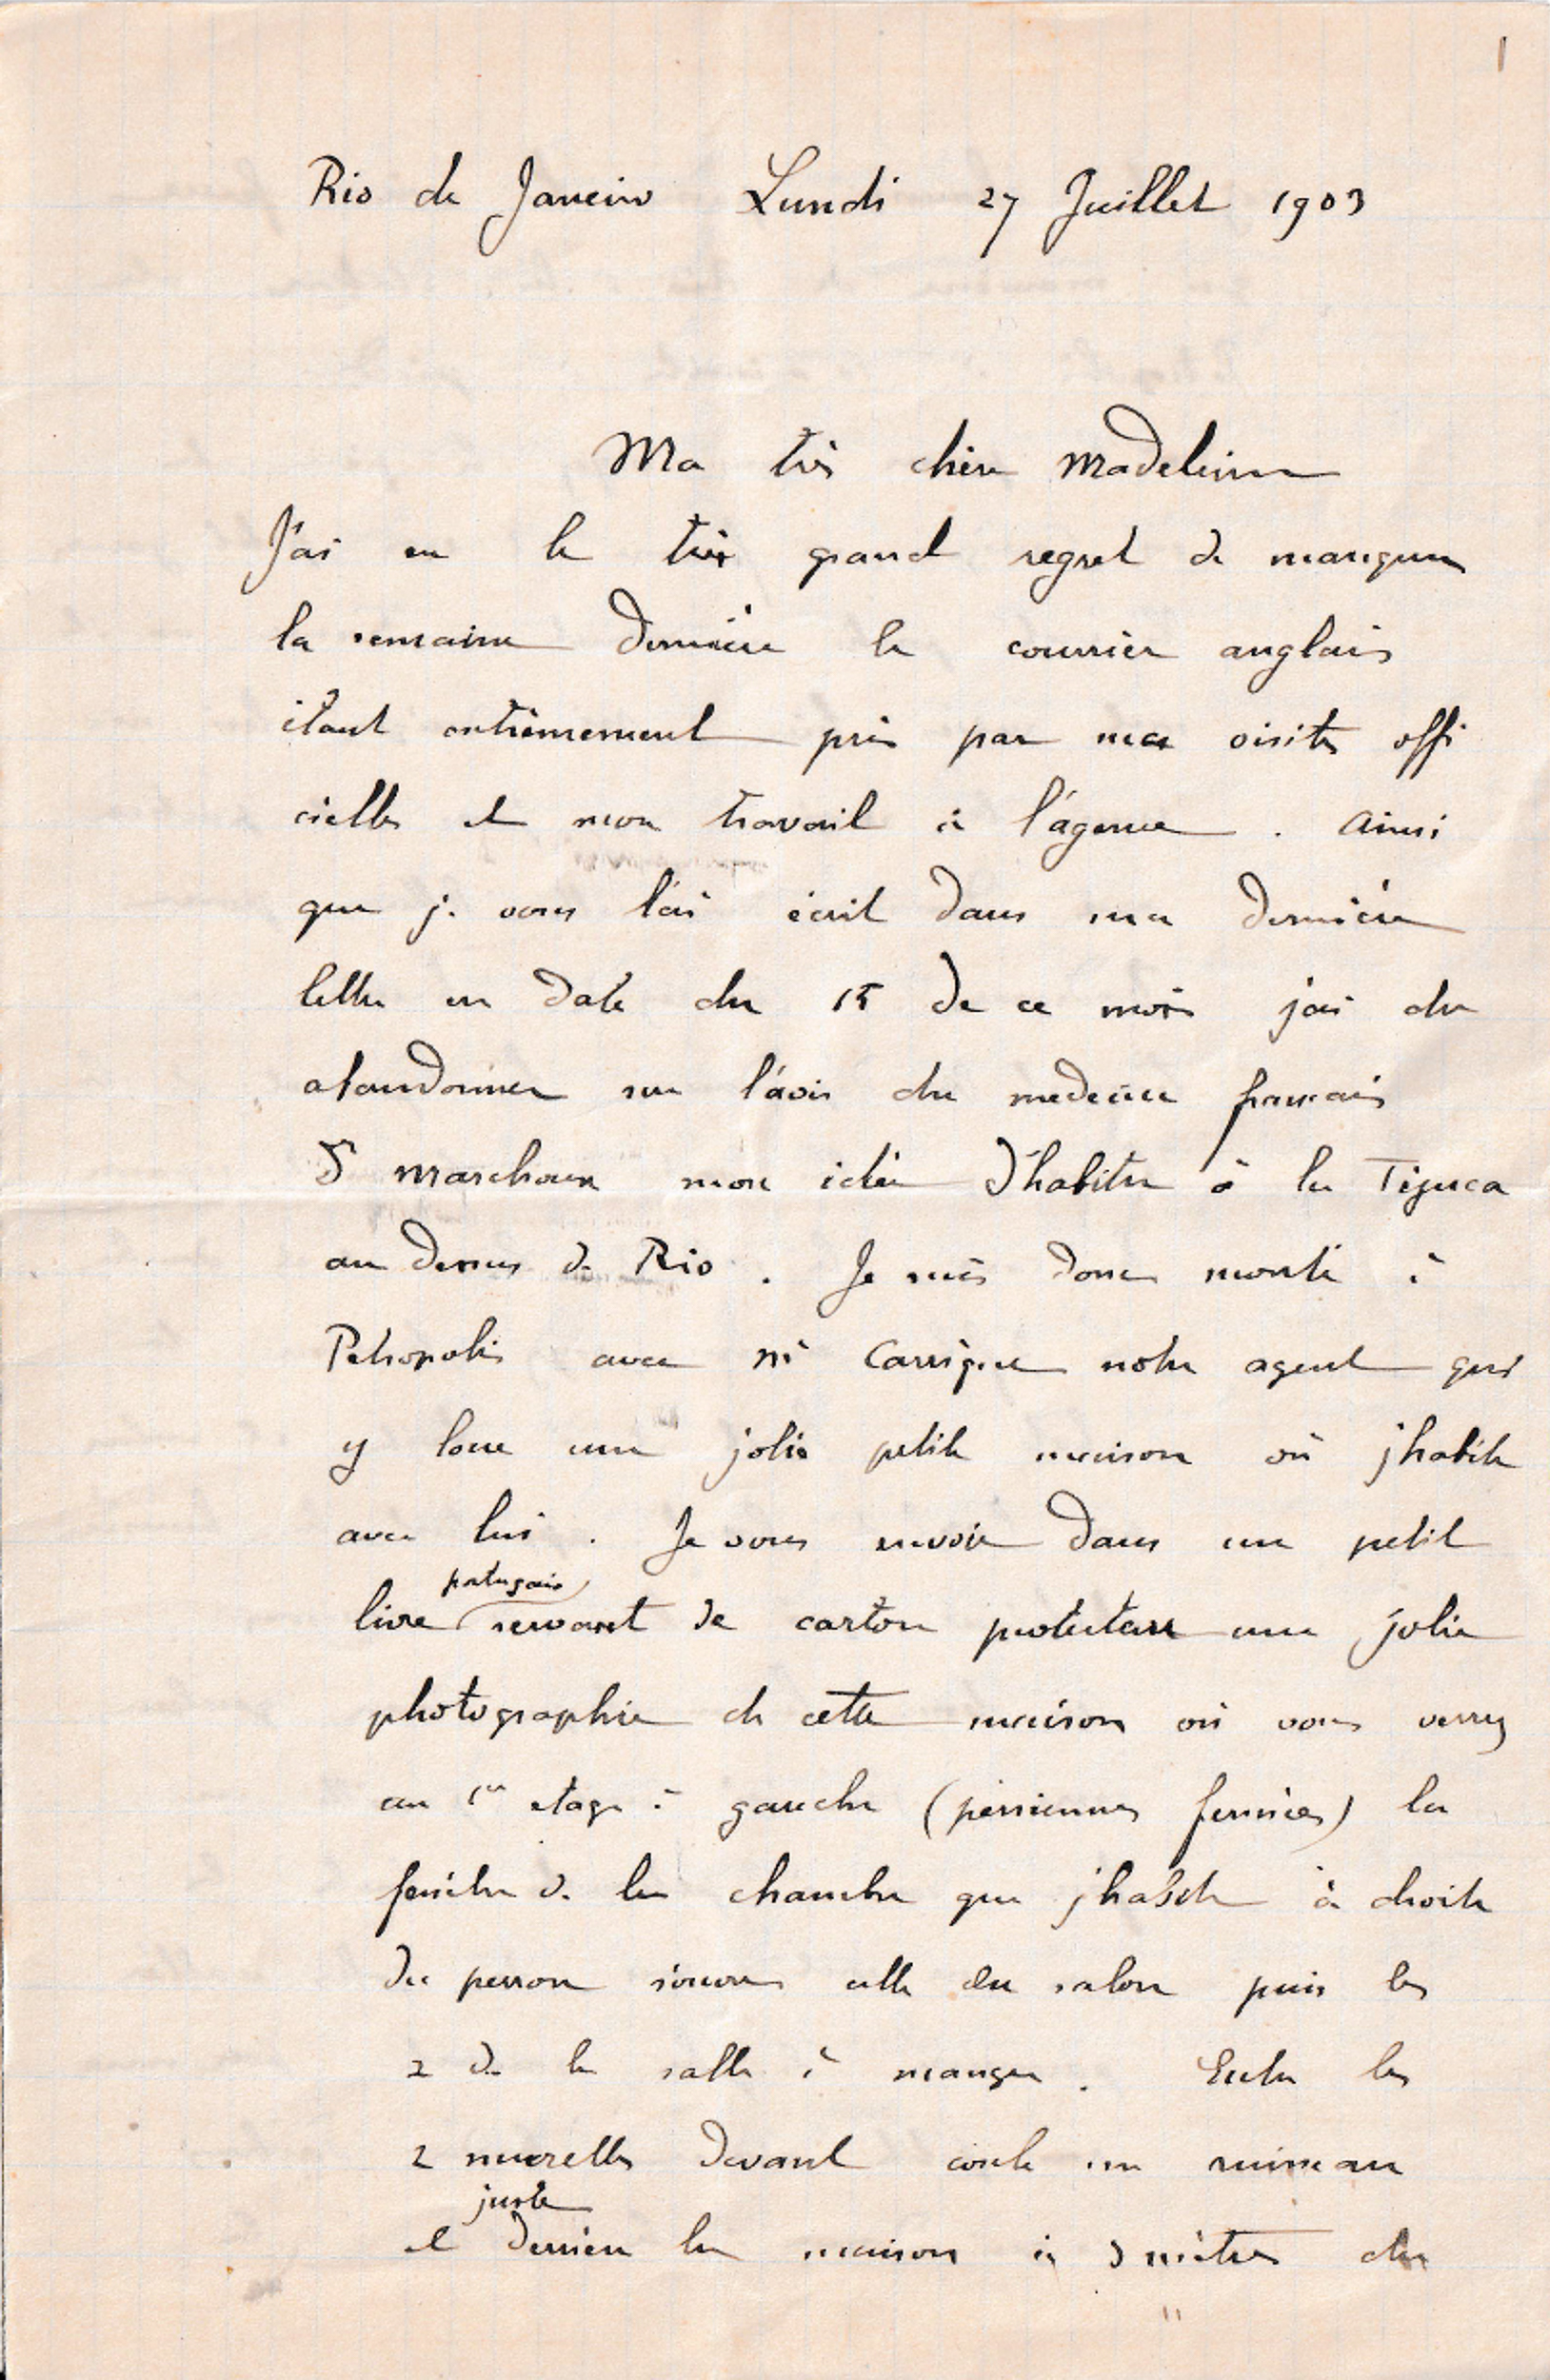 1
Rio de Janeiro Lundi 27 Juillet 1903
Ma très chère Madeleine
J'ai eu le très grand regret de manquer
la semaine dernière le courrier anglais
étant extrêmement pris par mes visites offi
cielles et mon travail à l'agence. Ainsi
que je vous l'ai écrit dans ma dernière
lettre en date du 15 de ce mois j'ai du
abandonner sur l'avis du medecin français
Dr Marchoux mon idée d'habiter à la Tijuca
au dessus de Rio. Je suis donc monté à
Petropolis avec Mr Carrique notre agent qui
y loue une jolie petite maison où j'habite
avec lui. Je vous envoie dans un petit
portugais
livre servant de carton protecteur une jolie
photographie de cette maison où vous verrez
au 1er etage à gauche (persiennes fermées) la
fenêtre de la chambre que j'habite à droite
du perron s'ouvre celle du salon puis les
2 de la salle à manger. Entre les
2 murelles devant coule un ruisseau
juste
et derrière la maison à 3 mètres du